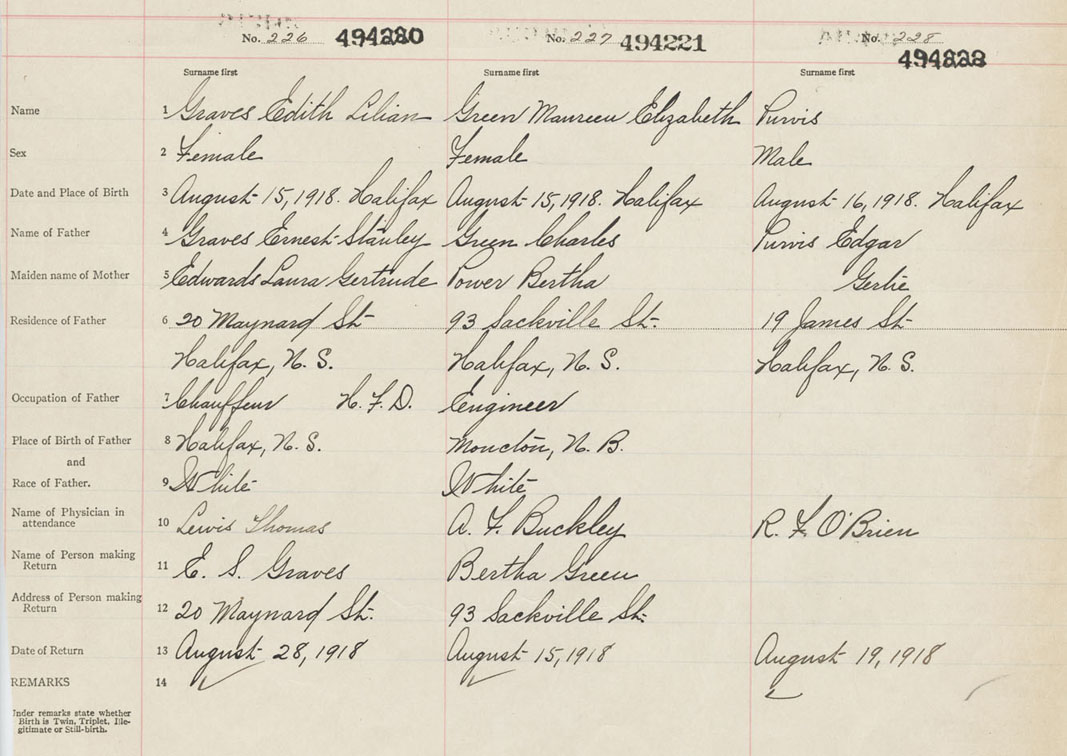 No. 226 494220 No. 227 494221 No. 228 494222
Surname first Surname first Surname first
Name 1 Graves Edith Lilian Green Maureen Elizabeth Purvis
Sex 2 Female Female Male
Date and Place of Birth 3 August 15, 1918. Halifax August 15, 1918. Halifax August 16, 1918. Halifax
Name of Father 4 Graves Ernest Stanley Green Charles Purvis Edgar
Maiden name of Mother 5 Edwards Laura Gertrude Power Bertha Gertie
Residence of Father 6 20 Maynard St 93 Sackville St. 19 James St
Halifax, N. S. Halifax, N. S. Halifax, N. S.
Occupation of Father 7 Chauffeur H. F. D. Engineer
Place of Birth of Father 8 Halifax, N. S. Moncton, N. B.
and
Race of Father. 9 White White
Name of Physician in
attendance 10 Lewis Thomas A. F. Buckley R. F O'Brien
Name of Person making
Return 11 E. S. Graves Bertha Green
Address of Person making
Return 12 20 Maynard St. 93 Sackville St.
Date of Return 13 August 28, 1918 August 15, 1918 August 19, 1918
REMARKS 14
Under remarks state whether
Birth is Twin, Triplet, Ille-
gitimate or Still-birth.